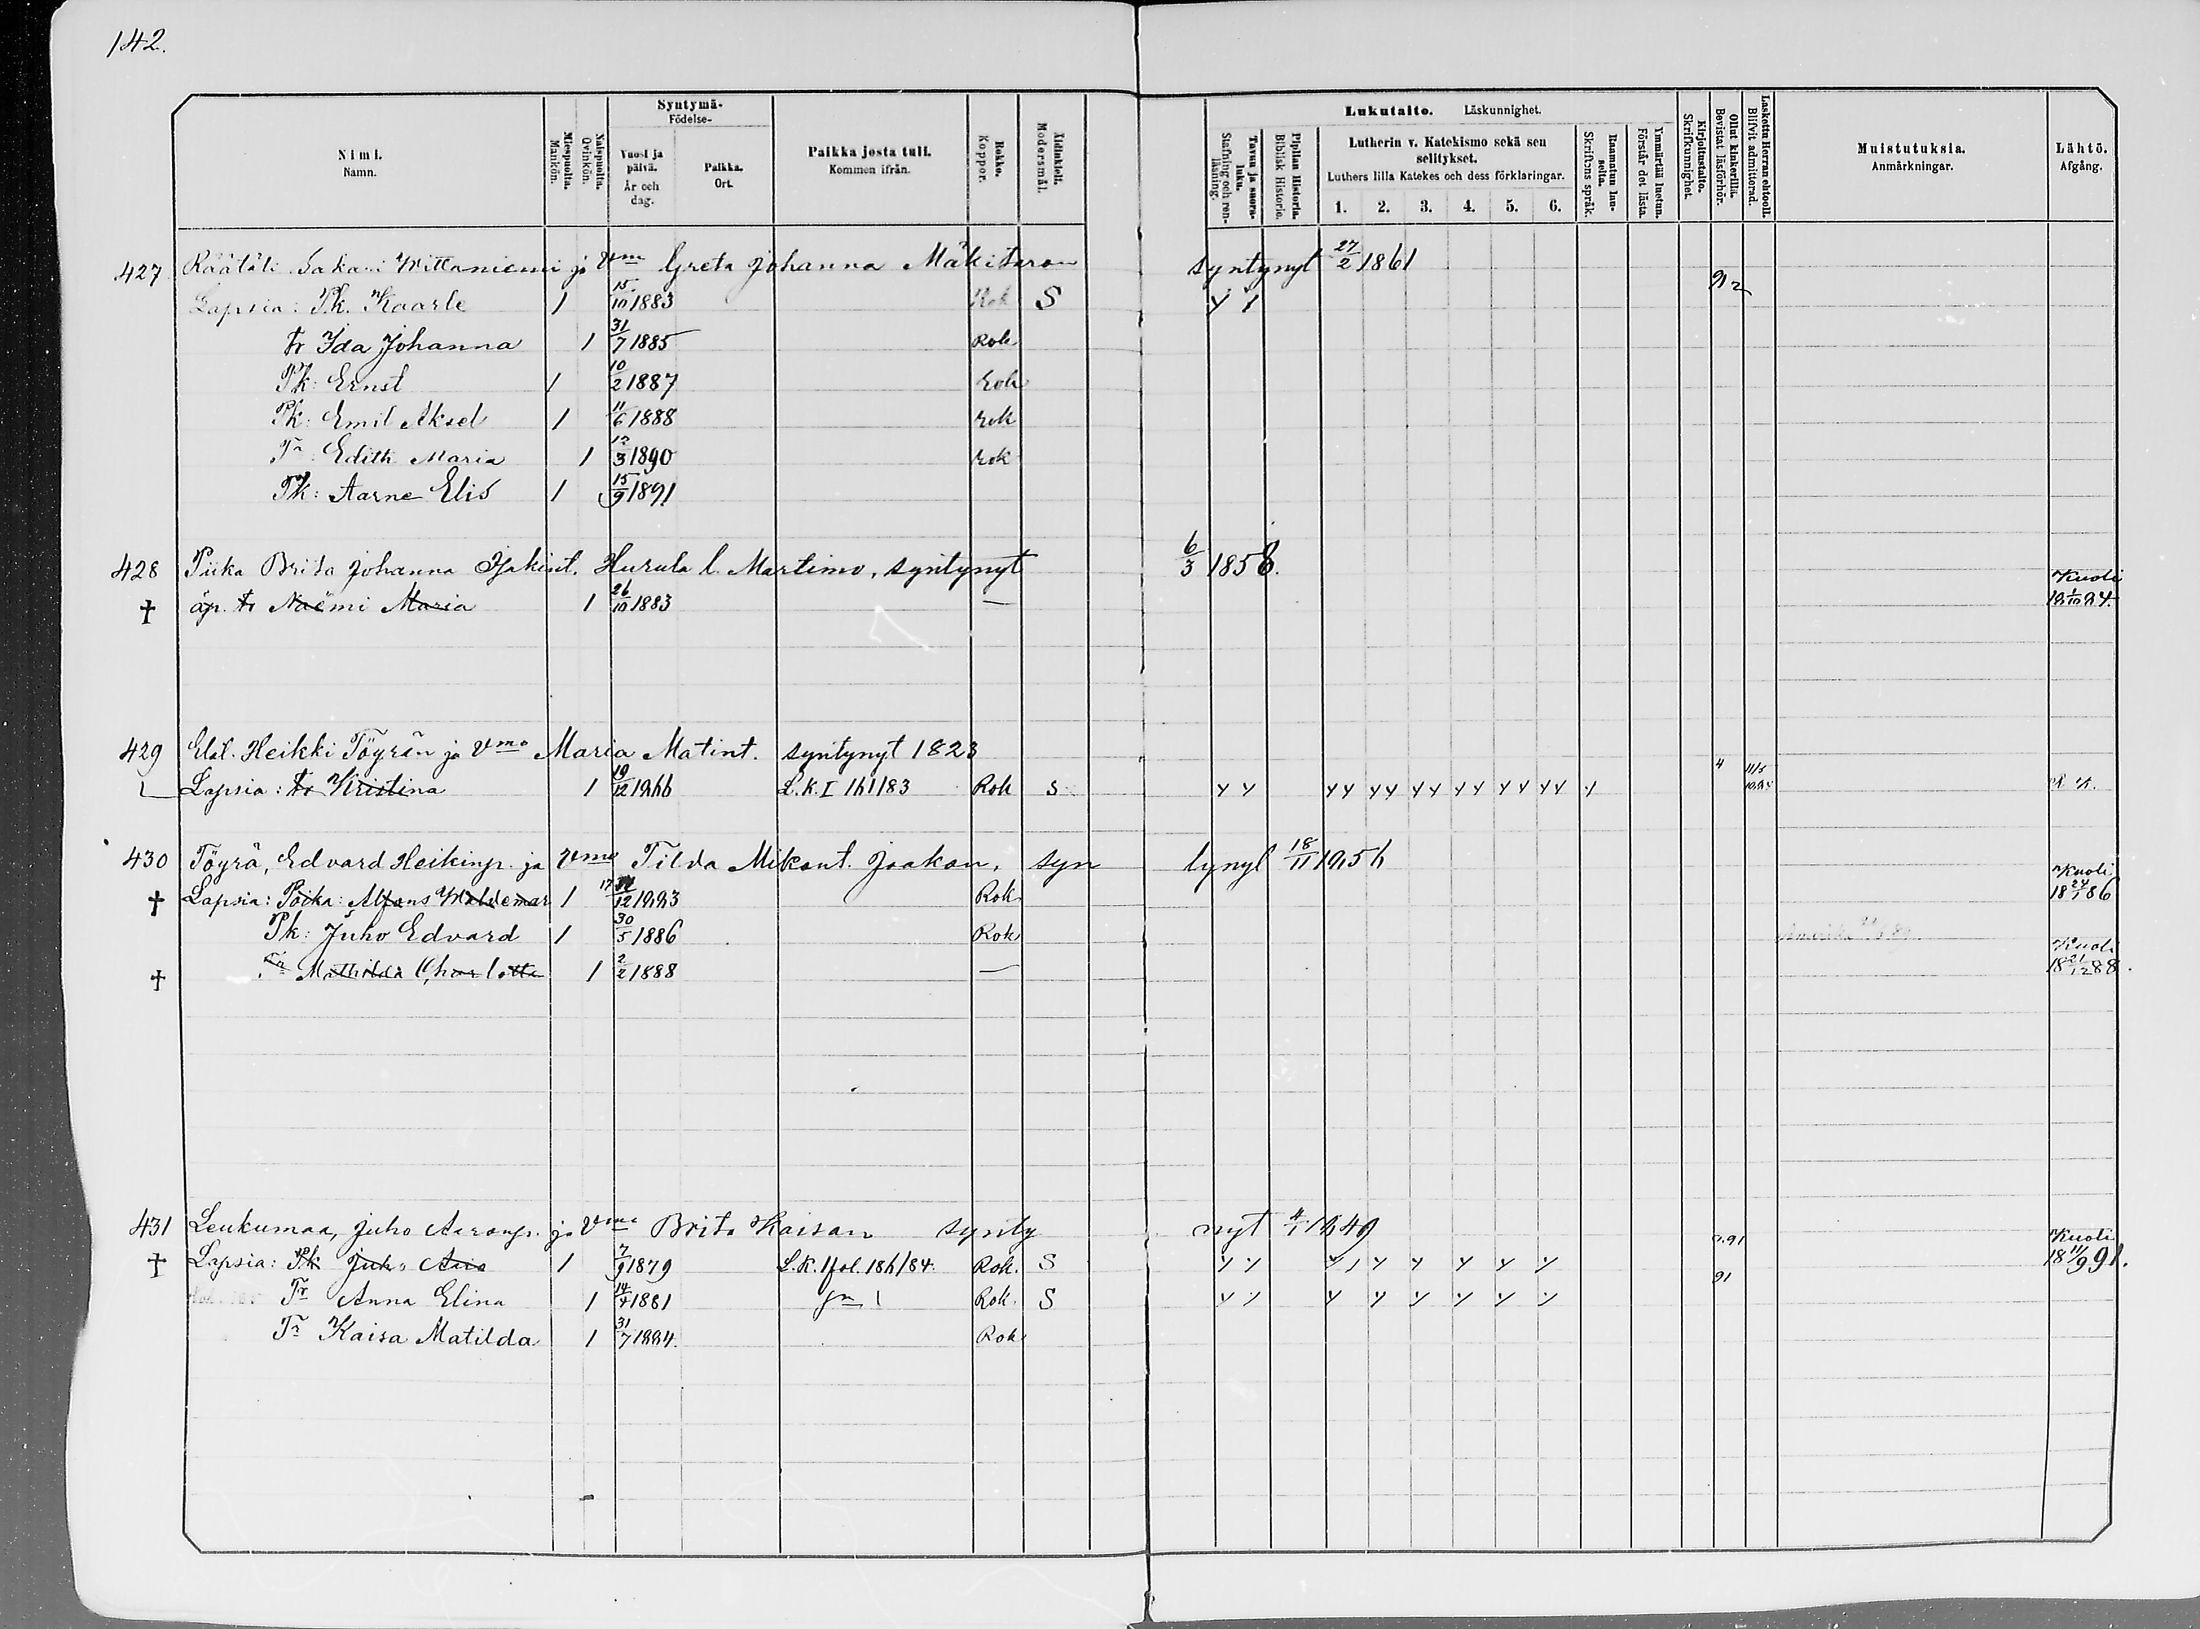 142.
Nimi. Namn.
Miespuolta. Mankön.
Naispuolta. Qvinkön.
Syntymä- Födelse-
Vuosi ja päivä. År och dag.
Paikka. Ort.
Paikka josta tuli. Kommen ifrån.
Rokko. Koppor.
Äidinkieli. Modersmål.
Lukutaito. Läskunnighet.
Tavuu ja suora- luku. Stafning och ren- läsning.
Piplian Historia. Biblisk Historie.
Lutherin v. Katekismo sekä sen selitykset.
Luthers lilla Katekes och dess förklaringar.
1. 2. 3. 4. 5. 6.
Raamatun lau- seita. Skriftens språk.
Ymmärtää luetun. Förstår det lästa.
Kirjoitustaito. Skrifkunnighet.
Ollut kinkerillä. Bevistat läsförhör.
Laskettu Herran ehtooll. Blifvit admitterad.
Muistutuksia. Anmärkningar.
Lähtö. Afgång.
427 Räätäli Sakari Wittaniemi ja Vmo Greta Johanna Mäkitaron syntynyt 27/2 1861
Lapsia: Pk. Kaarle 1 15/10 1883 Rok S y y 92
Tr Ida Johanna 1 31/7 1885 Rok
Pk: Ernst 1 10/2 1887 Rok
Pk: Emil Aksel 1 11/6 1888 rok
Tr Edith Maria 1 12/3 1890 rok
Pk: Aarne Elis 1 15/9 1891
428 Piika Brita Johanna Isakint. Hurula l. Martimo, syntynyt 6/3 1858.
† äp. tr Naëmi Maria 1 26/10 1883 — Kuoli 18 1/10 84.
429 Heikki Töyrän ja Vmo Maria Matint. syntynyt 1823
Lapsia: tr Kristina 1 19/12 1866 L.K. I 161/83 Rok S y y yy yy yy yy yy yy y
430 Töyrä, Edvard Heikinp. ja Vmo Tilda Mikont. Jaakon, syn tynyt 18/11 1856
† Lapsia: Poika: Alfons Waldemar 1 17/12 1883 Rok Kuoli 18 24/1 86
Pk: Juho Edvard 1 30/5 1886 Rok
† Tr Mathilda Charlotta 1 2/2 1888 — Kuoli 18 21/12 88.
431 Leukumaa, Juho Aaronp. ja Vmo Brita Kaisan synty nyt 4/1 1849
† Lapsia: Pk Juho 1 7/9 1879 L.K. I fol. 186/84. Rok. S y y y y y y y y 91 Kuoli 18 11/9 91.
Tr Anna Elina 1 14/4 1881 Rok. S y y y y y y y y 91
Tr Kaisa Matilda 1 31/7 1884. Rok